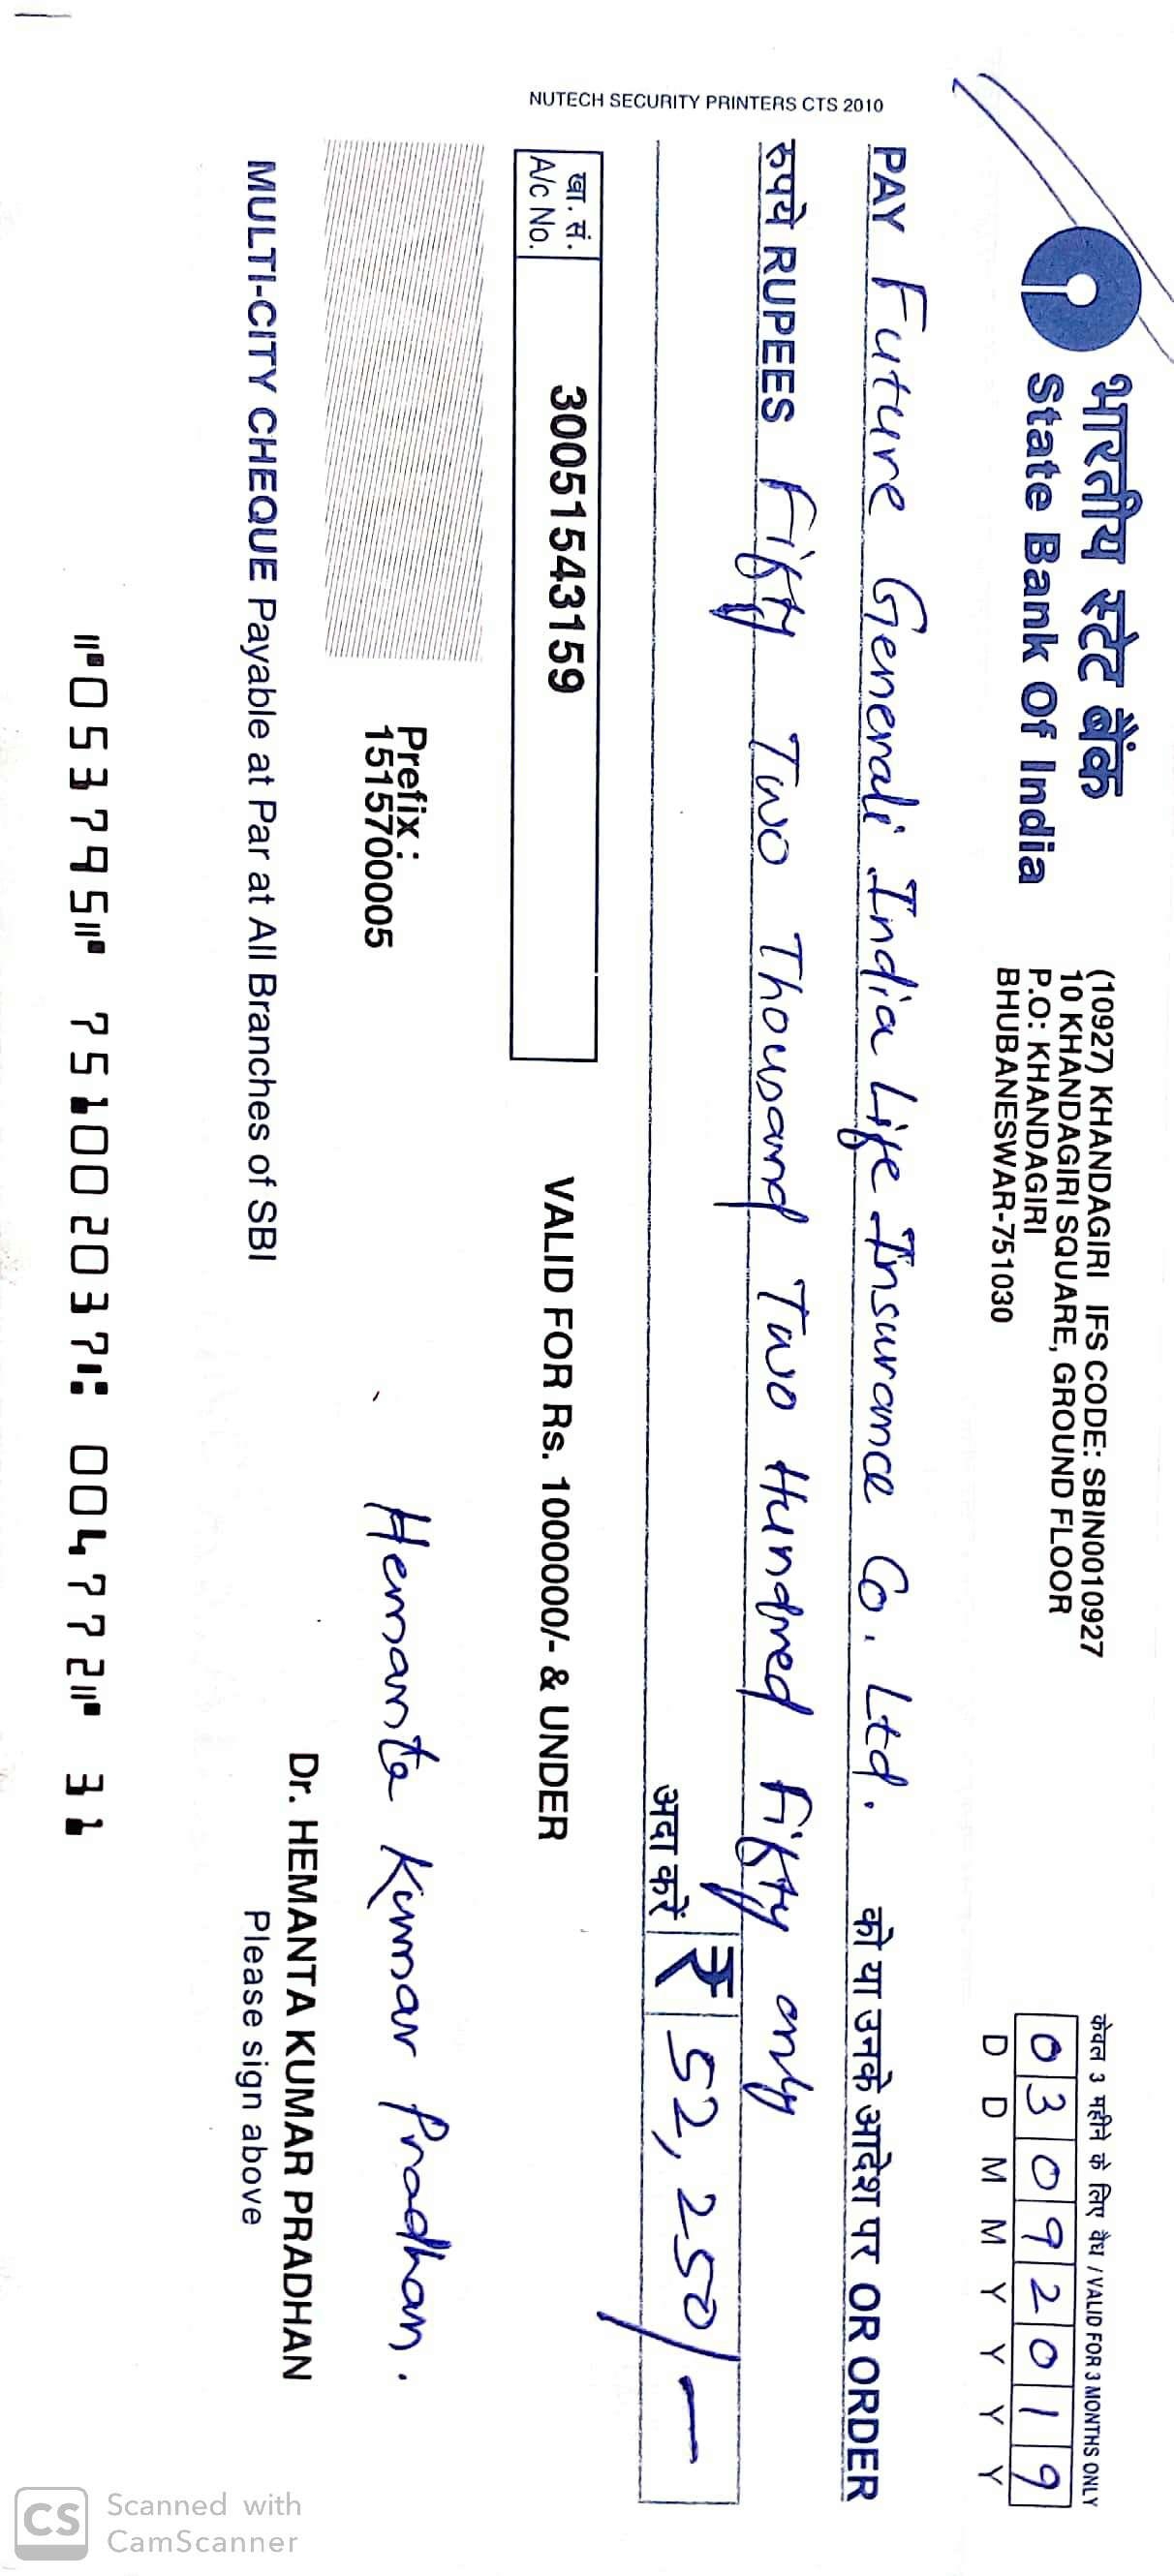 भारतीय स्टेट बैंक
State Bank Of India
(10927) KHANDAGIRI IFS CODE: SBIN0010927
10 KHANDAGIRI SQUARE, GROUND FLOOR
P.O: KHANDAGIRI
BHUBANESWAR-751030
केवल 3 महीने के लिए वैध / VALID FOR 3 MONTHS ONLY
0 3 0 9 2 0 1 9
D D M M Y Y Y Y
PAY Future Generali India Life Insurance Co. Ltd. को या उनके आदेश पर OR ORDER
रुपये RUPEES Fifty Two Thousand Two Hundred Fifty only
अदा करें ₹ 52,250/-
खा. सं.
A/c No. 30051543159
VALID FOR Rs. 1000000/- & UNDER
NUTECH SECURITY PRINTERS CTS 2010
Prefix :
151570005
Hemanta Kumar Pradhan.
Dr. HEMANTA KUMAR PRADHAN
Please sign above
MULTI-CITY CHEQUE Payable at Par at All Branches of SBI
⑈053795⑈ 751002037⑆ 004772⑈ 31
CS Scanned with
CamScanner